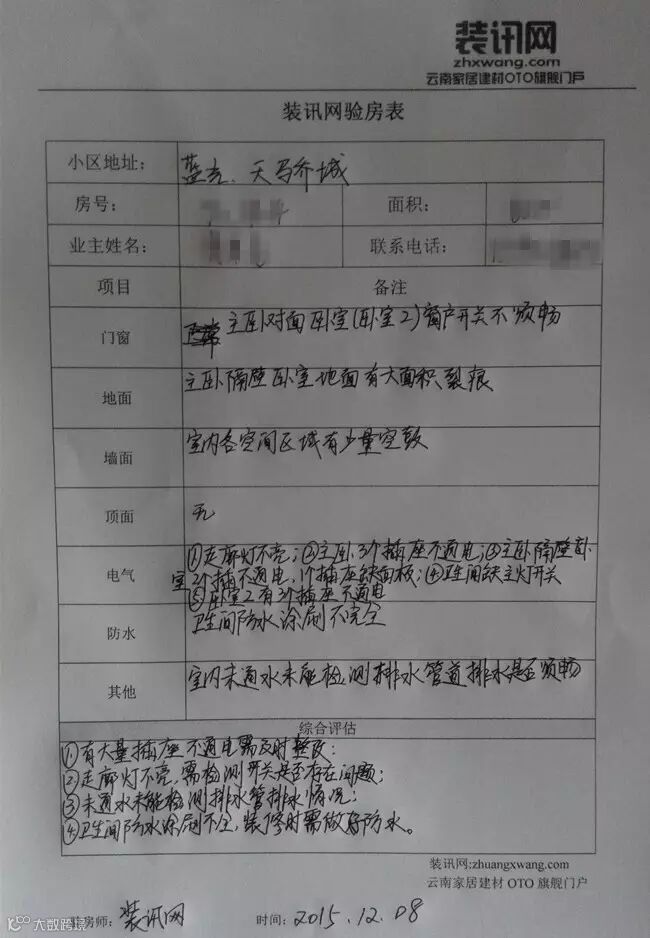 装讯网
zhxwang.com
云南家居建材OTO旗舰门户
装讯网验房表
小区地址: 蓝光、天马乔城
房号: 面积:
业主姓名: 联系电话:
项目 备注
门窗 主卧对面卧室(卧室2)窗户开关不顺畅
地面 主卧隔壁卧室地面有大面积裂痕
墙面 室内各空间区域有少量空鼓
顶面 无
电气 ①走廊灯不亮;②主卧3个插座不通电;③主卧隔壁卧
室2个插不通电,1个插座缺面板;④卫生间缺主灯开关
⑤卧室2有3个插座不通电
防水 卫生间防水涂刷不完全
其他 室内未通水未能检测排水管道排水是否顺畅
综合评估
①有大量插座不通电需及时整改:
②走廊灯不亮,需检测开关是否存在问题;
③未通水未能检测排水管排水情况;
④卫生间防水涂刷不全,装修时需做好防水。
装讯网:zhuangxwang.com
云南家居建材 OTO 旗舰门户
验房师: 装讯网 时间: 2015.12.08
大数跨境